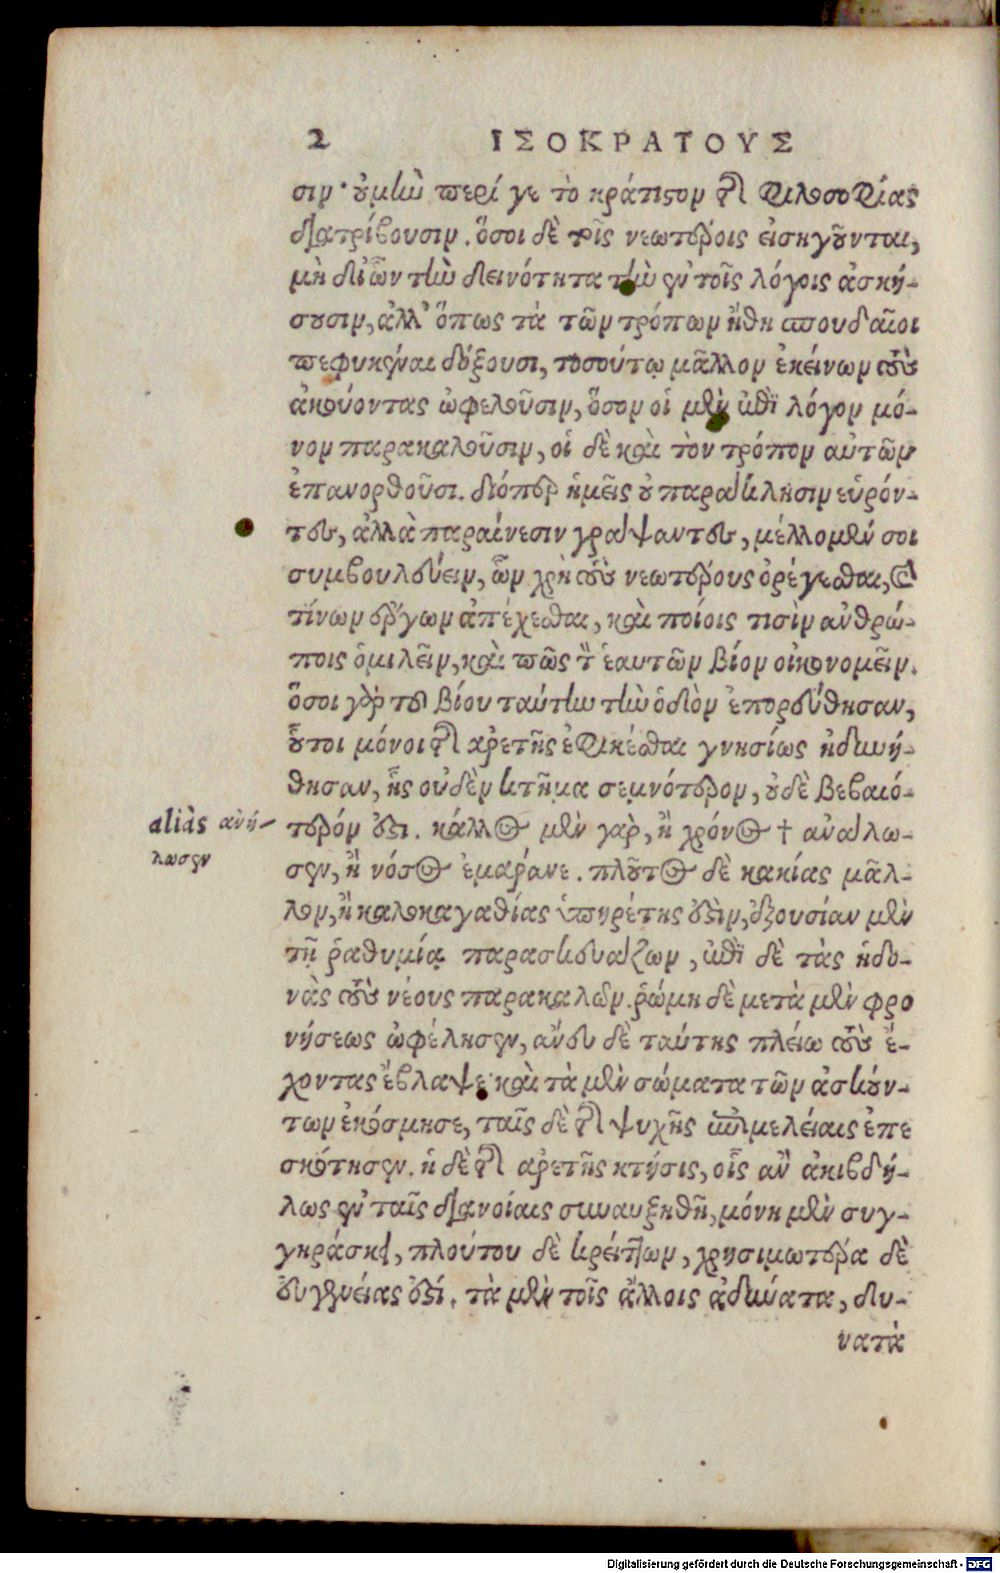 2 ΙΣΟΚΡΑΤΟΥΣ
σιν· οὐ μὴν περί γε τὸ κράτιστον τῆς φιλοσοφίας
διατρίβουσιν. ὅσοι δὲ τοῖς νεωτέροις εἰσηγοῦνται,
μὴ δι' ὧν τὴν δεινότητα τὴν ἐν τοῖς λόγοις ἀσκή-
σουσιν, ἀλλ' ὅπως τὰ τῶν τρόπων ἤθη σπουδαῖοι
πεφυκέναι δόξουσι, τοσούτῳ μᾶλλον ἐκείνων τοὺς
ἀκούοντας ὠφελοῦσιν, ὅσον οἱ μὲν ἐπὶ λόγον μό-
νον παρακαλοῦσιν, οἱ δὲ καὶ τὸν τρόπον αὐτῶν
ἐπανορθοῦσι. διόπερ ἡμεῖς οὐ παράκλησιν εὑρόν-
τες, ἀλλὰ παραίνεσιν γράψαντες, μέλλομέν σοι
συμβουλεύειν, ὧν χρὴ τοὺς νεωτέρους ὀρέγεσθαι, καὶ
τίνων ἔργων ἀπέχεσθαι, καὶ ποίοις τισὶν ἀνθρώ-
ποις ὁμιλεῖν, καὶ πῶς τὸν ἑαυτῶν βίον οἰκονομεῖν.
ὅσοι γὰρ τοῦ βίου ταύτην τὴν ὁδὸν ἐπορεύθησαν,
οὗτοι μόνοι τῆς ἀρετῆς ἐφικέσθαι γνησίως ἠδυνή-
θησαν, ἧς οὐδὲν κτῆμα σεμνότερον, οὐδὲ βεβαιό-
τερόν ἐστι. κάλλος μὲν γὰρ, ἢ χρόνος † ἀνάλω-
σεν, ἢ νόσος ἐμαράνε. πλοῦτος δὲ κακίας μᾶλ-
λον, ἢ καλοκαγαθίας ὑπηρέτης ἐστὶν, ἐξουσίαν μὲν
τῇ ῥαθυμίᾳ παρασκευάζων, ἐπὶ δὲ τὰς ἡδο-
νὰς τοὺς νέους παρακαλῶν. ῥώμη δὲ μετὰ μὲν φρο
νήσεως ὠφέλησεν, ἄνευ δὲ ταύτης πλείω τοὺς ἔ-
χοντας ἔβλαψε· καὶ τὰ μὲν σώματα τῶν ἀσκούν-
των ἐκόσμησε, ταῖς δὲ τῆς ψυχῆς ἐπιμελείαις ἐπε
σκότησεν. ἡ δὲ τῆς ἀρετῆς κτήσις, οἷς ἂν ἀκιβδή-
λως ἐν ταῖς διανοίαις συναυξηθῇ, μόνη μὲν συγ-
γηράσκει, πλούτου δὲ κρείττων, χρησιμωτέρα δὲ
εὐγενείας ἐστί. τὰ μὲν τοῖς ἄλλοις ἀδύνατα, δυ-
νατὰ
aliàs ἀνή-
λωσεν
Digitalisierung gefördert durch die Deutsche Forschungsgemeinschaft - DFG